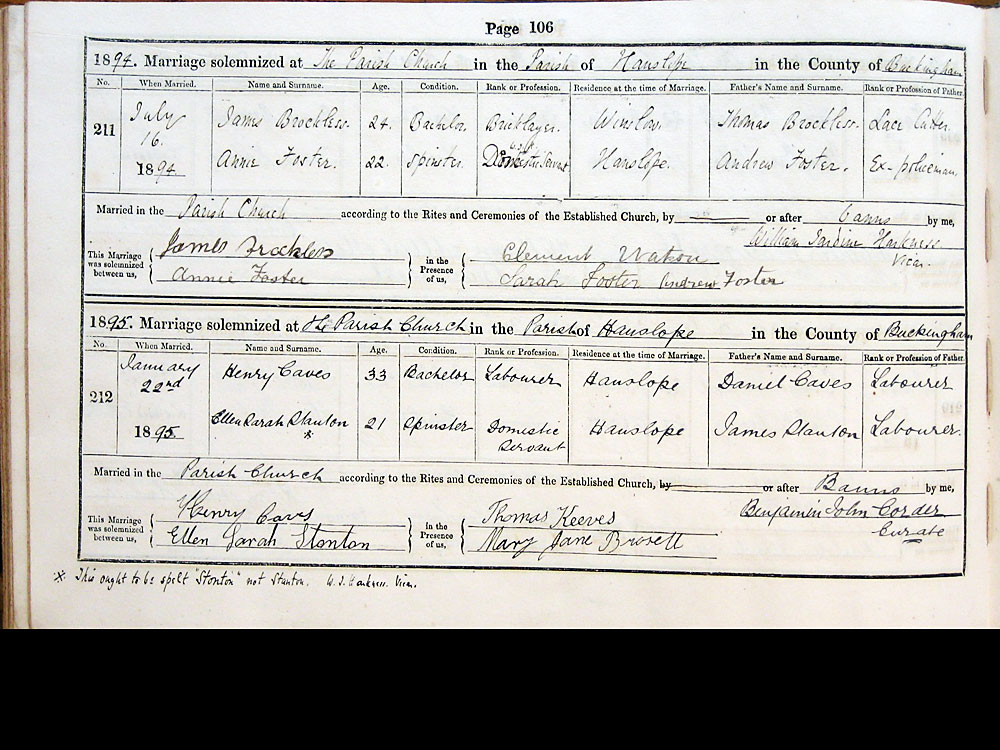 Page 106
1894. Marriage solemnized at The Parish Church in the Parish of Hanslope in the County of Buckingham
No. When Married. Name and Surname. Age. Condition. Rank or Profession. Residence at the time of Marriage. Father's Name and Surname. Rank or Profession of Father.
211 July 16. 1894 James Brockless. 24. Bachelor Bricklayer. Winslow. Thomas Brockless. Lace Cutter.
Annie Foster. 22. Spinster. Domestic Servant Hanslope. Andrew Foster. Ex-policeman.
Married in the Parish Church according to the Rites and Ceremonies of the Established Church, by or after banns by me,
William Jardine Harkness
Vicar.
This Marriage was solemnized between us, James Brockless Annie Foster in the Presence of us, Clement Watson
Sarah Foster Andrew Foster
1895. Marriage solemnized at The Parish Church in the Parish of Hanslope in the County of Buckingham
No. When Married. Name and Surname. Age. Condition. Rank or Profession. Residence at the time of Marriage. Father's Name and Surname. Rank or Profession of Father.
212 January 22nd 1895. Henry Caves 33 Bachelor Labourer Hanslope Daniel Caves Labourer
Ellen Sarah Stanton * 21 Spinster Domestic Servant Hanslope James Stanton Labourer.
Married in the Parish Church according to the Rites and Ceremonies of the Established Church, by or after Banns by me,
Benjamin John Corder
Curate
This Marriage was solemnized between us, Henry Caves Ellen Sarah Stonton In the Presence of us, Thomas Keeves
Mary Jane
* This ought to be spelt "Stonton" not Stanton. W. J. Harkness. Vicar.